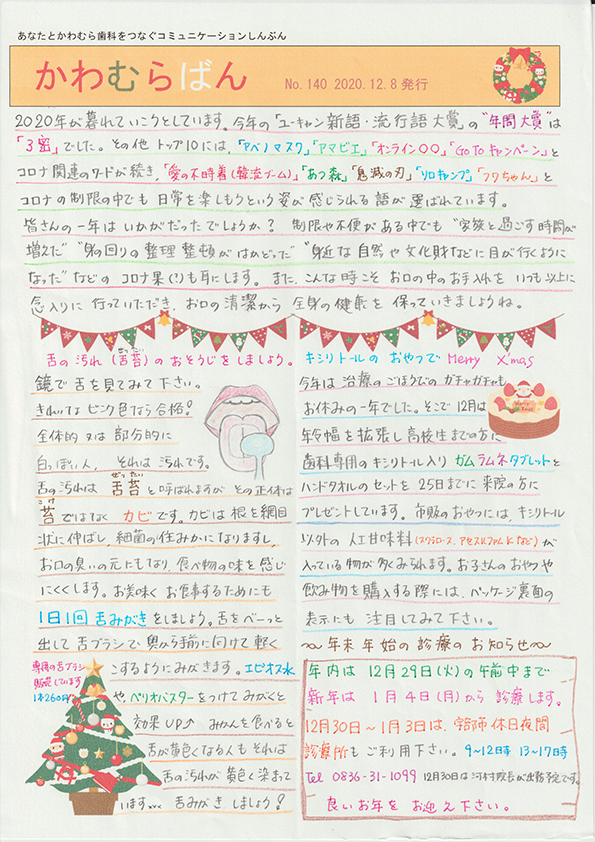 あなたとかわむら歯科をつなぐコミュニケーションしんぶん
かわむらばん No.140 2020.12.8発行
2020年が暮れていこうとしています。今年の「ユーキャン新語・流行語大賞」の"年間大賞"は
「3密」でした。その他トップ10には、「アベノマスク」「アマビエ」「オンライン○○」「Go To キャンペーン」と
コロナ関連のワードが続き、「愛の不時着(韓流ブーム)」「あつ森」「鬼滅の刃」「ソロキャンプ」「フワちゃん」と
コロナの制限の中でも日常を楽しもうという姿が感じられる語が選ばれています。
皆さんの一年はいかがだったでしょうか? 制限や不便がある中でも"家族と過ごす時間が
増えた""身の回りの整理整頓がはかどった""身近な自然や文化財などに目が行くように
なった"などのコロナ果(!)も耳にします。また、こんな時こそお口の中のお手入れをいつも以上に
念入りに行っていただき、お口の清潔から全身の健康を保っていきましょうね。
舌の汚れ(舌苔)のおそうじをしましょう。
ぜったい
鏡で舌を見てみて下さい。
きれいなピンク色なら合格!
全体的又は部分的に
白っぽい人、それは汚れです。
舌の汚れは舌苔と呼ばれますがその正体は
ぜったい
苔ではなくカビです。カビは根を網目
こけ
状に伸ばし、細菌の住みかになりますし、
お口の臭いの元にもなり、食べ物の味を感じ
にくくします。お美味くお食事するためにも
1日1回舌みがきをしましょう。舌をベーっと
出して舌ブラシで奥から手前に向けて軽く
こするようにみがきます。エピオス水
やペリオバスターをつけてみがくと
効果UP↑ みかんを食べると
舌が黄色くなる人もそれは
舌の汚れが黄色く染まって
います… 舌みがきしましょう!
専用の舌ブラシ
販売しています
1本260円
キシリトールのおやつでMerry X'mas
今年は治療のごほうびのガチャガチャも
お休みの一年でした。そこで12月は
年令幅を拡張し高校生までの方に
歯科専用のキシリトール入りガムラムネタブレットと
ハンドタオルのセットを25日までに来院の方に
プレゼントしています。市販のおやつには、キシリトール
以外の人工甘味料(スクラロース、アセスルファムKなど)が
入っている物が多くみられます。お子さんのおやつや
飲み物を購入する際には、パッケージ裏面の
表示にも注目してみて下さい。
〜年末年始の診療のお知らせ〜
年内は12月29日(火)の午前中まで
新年は1月4日(月)から診療します。
12月30日〜1月3日は、宇部市休日夜間
診療所もご利用下さい。9〜12時 13〜17時
Tel 0836-31-1099 12月30日は河村院長が出務予定です。
良いお年をお迎え下さい。